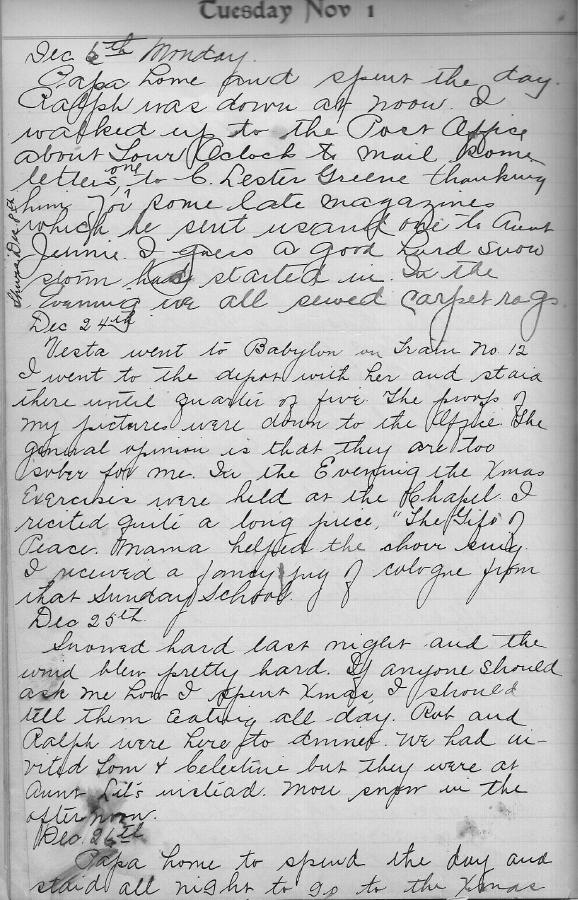 Tuesday Nov 1
Dec 6th Monday.
Papa home and spent the day.
Ralph was down at noon. I
walked up to the Post Office
about four Oclock to mail some
letters one to C. Lester Greene thanking
him for some late magazines
which he sent us and one to Aunt
Jennie. I guess a good hard snow
storm had started in. In the
Evening we all sewed carpet rags.
Dec 24th
Vesta went to Babylon on train No. 12
I went to the depot with her and staid
there until quarter of five. The proofs of
my pictures were down to the Office. The
general opinion is that they are too
sober for me. In the Evening the Xmas
Exercises were held at the Chapel. I
recited quite a long piece, "The Gifs of
Peace. Mama helped the choir sing.
I received a fancy jug of cologne from
that Sunday School.
Dec 25th.
Snowed hard last night and the
wind blew pretty hard. If anyone should
ask me how I spent Xmas, I should
tell them Eating all day. Rob and
Ralph were here to dinner. We had in-
vited Tom & Celestine but they were at
Aunt Lit's instead. More snow in the
afternoon.
Dec. 26th
Papa home to spend the day and
staid all night to go to the Xmas